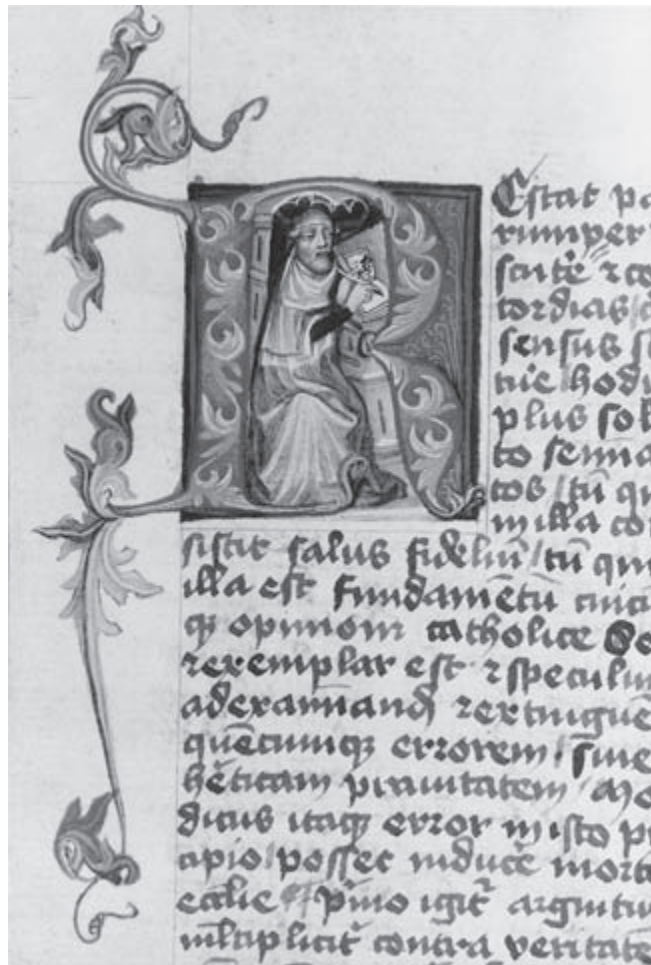 REstat pa
rumper
scutē ⁊ co
cordias
sensus sc
ture hodi
plus soli
to semīa
tos / tū qu
in illa cō
sistit salus fideliū / tū quī
illa est fundamētū cuic
qꝫ opinioni catholice
⁊ exemplar est ⁊ speculū
ad examinand ⁊ extinguē
quēcumqꝫ errorem / siue
hēticam prauitatem / Mo
dicus itaqꝫ error in isto pⁱ
cipio posset inducē morte
ecclīe pⁱmo igit̄ arguitu
mltiplicit̄ contra veritatē